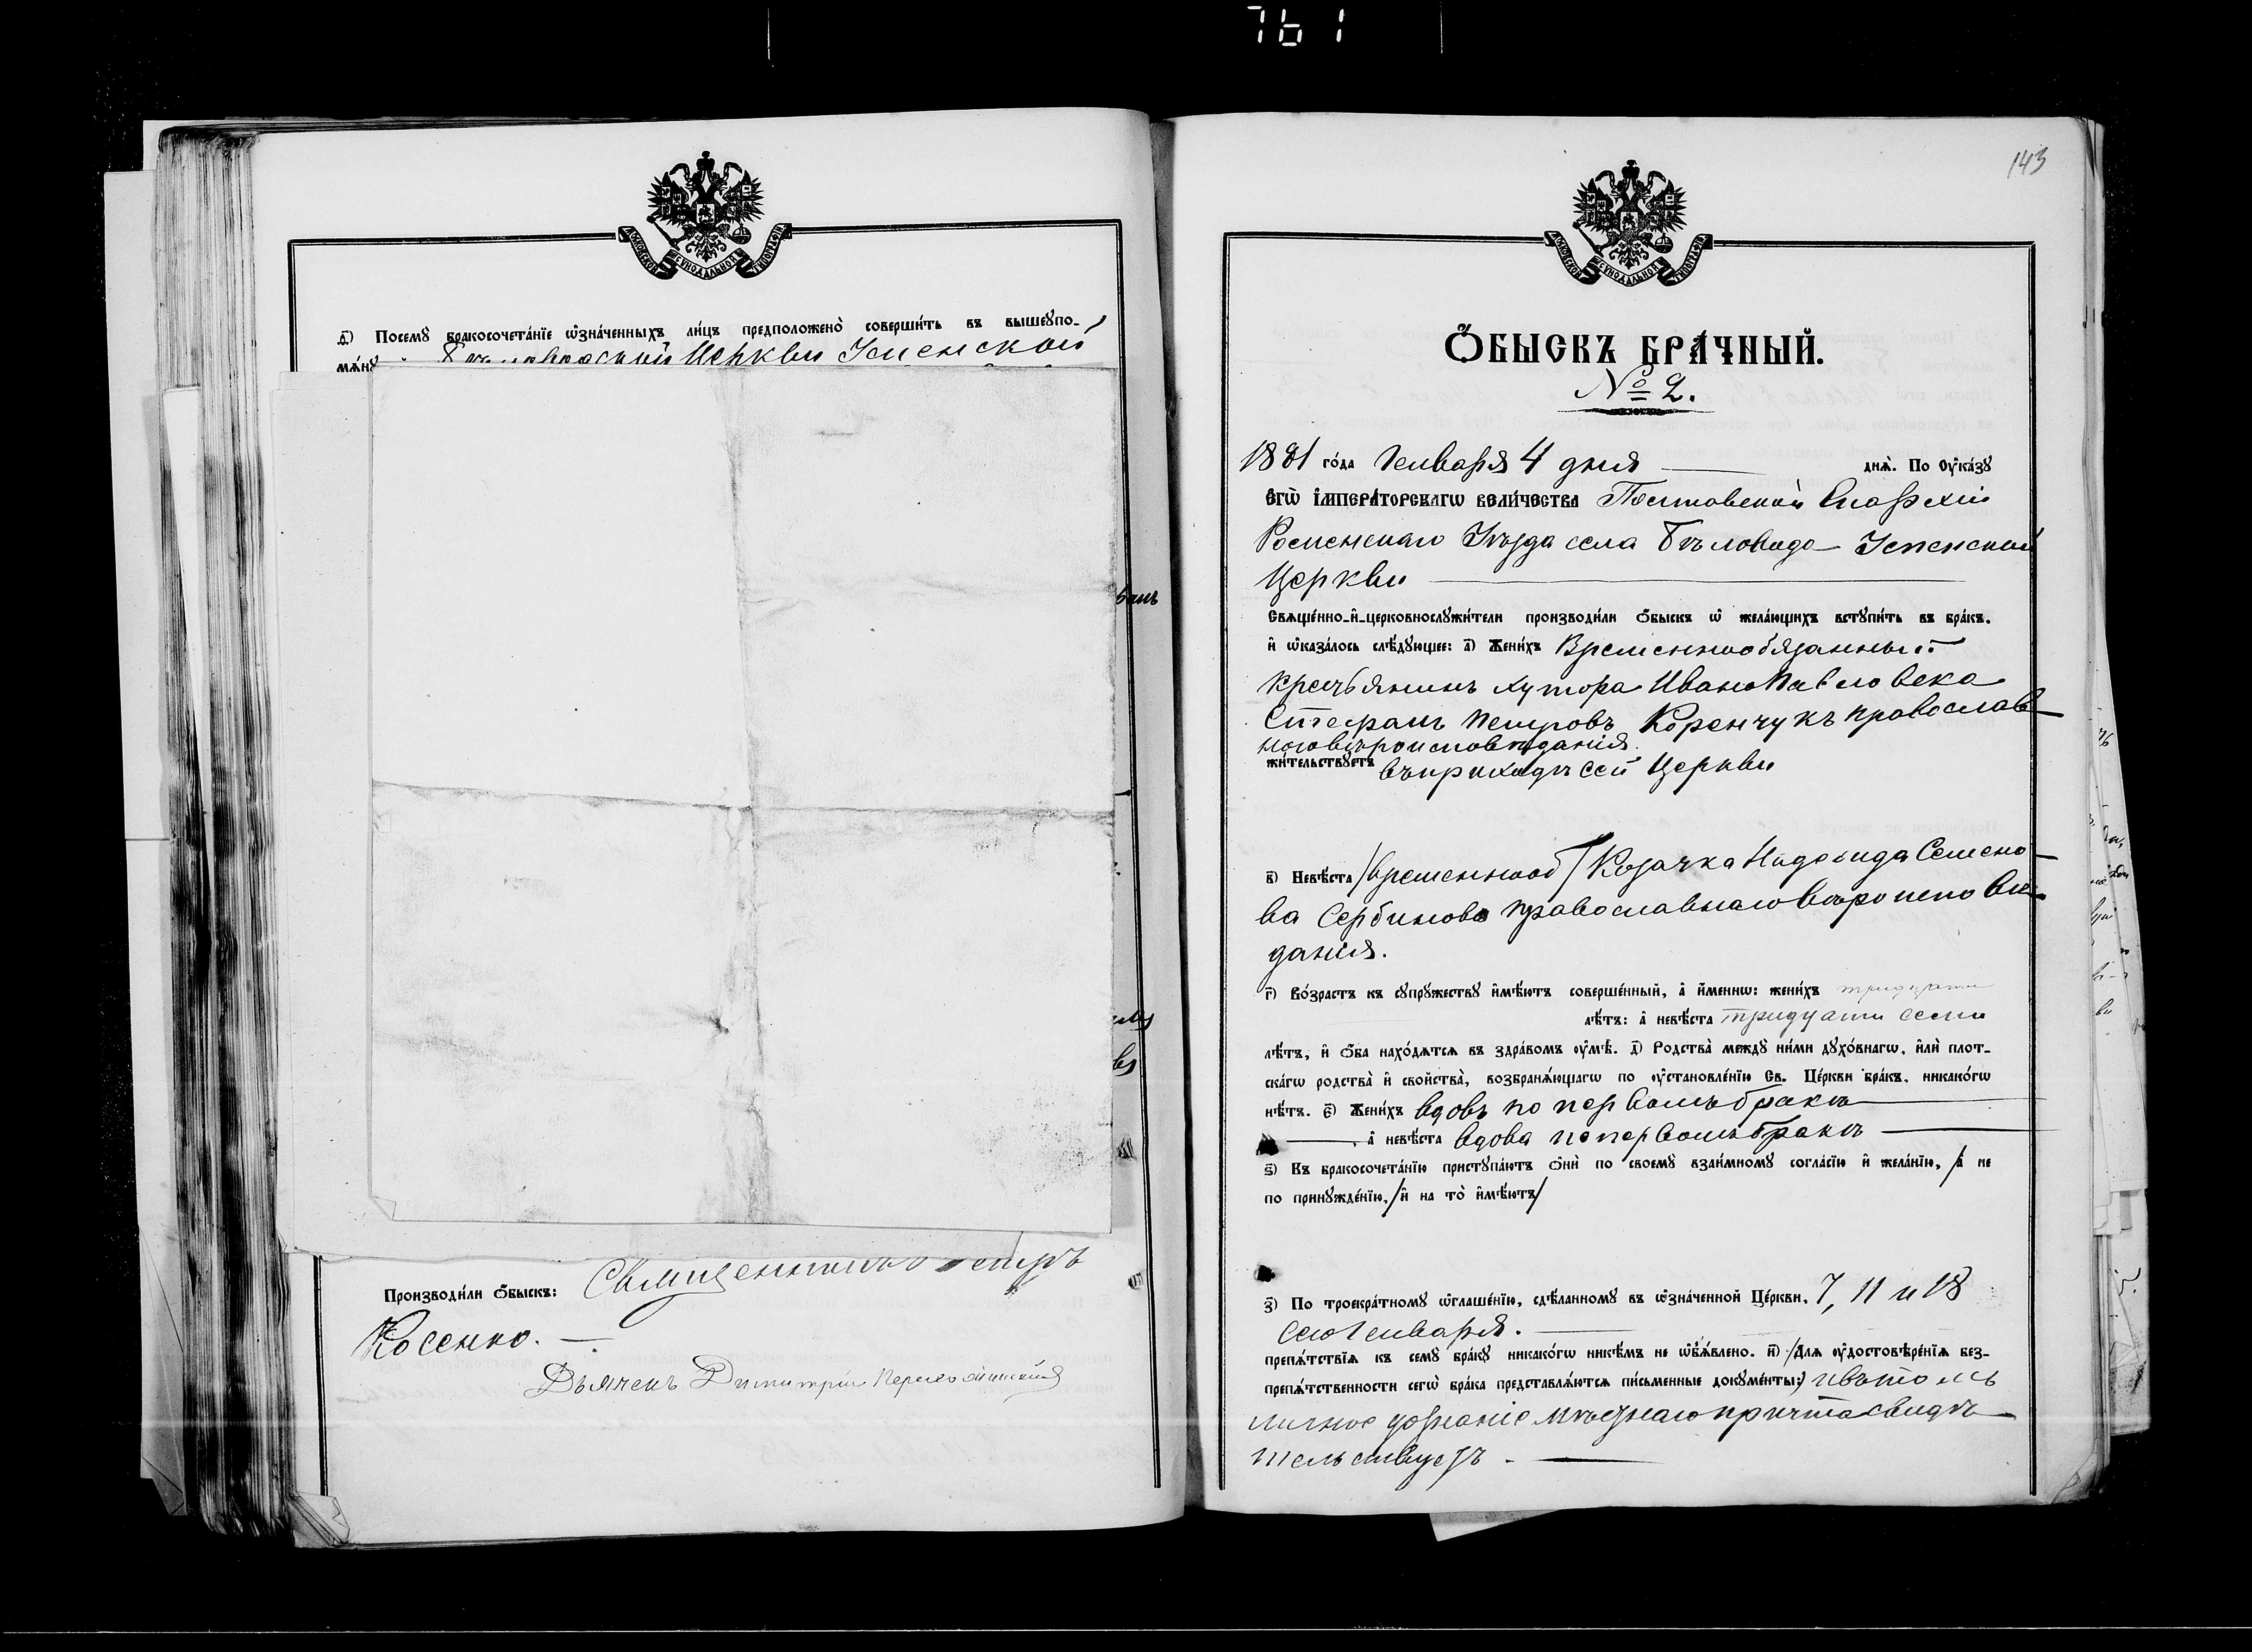 761
МОСКОВСКОЙ СѴНОДАЛЬНОЙ ТИПОГРАФІИ
д҃і) Посемꙋ̀ бракосочета́нїе ѡ҆зна́ченныхъ ли́цъ предположено̀ соверши́ть въ вышеꙋпо-
мѧ́нꙋ Церкви Успенской
Произво́дили ѻ҆́быскъ: Священникъ Петръ
Косенко.
Дьячекъ Димитрій
143
МОСКОВСКОЙ СѴНОДАЛЬНОЙ ТИПОГРАФІИ
Ѻ҆́БЫСКЪ БРА́ЧНЫЙ.
№ 2.
1881 го́да Генваря 4 дня днѧ̀. По Оу҆ка́зꙋ
Е҆гѡ̀ І҆мпера́торскагѡ вели́чества Полтавской Епархіи
Роменскаго Уѣзда села Бѣловода Успенской
Церкви
Свѧще́нно-и҆-церковнослꙋжи́тели производи́ли ѻ҆́быскъ ѡ҆ жела́ющихъ встꙋпи́ть въ бра́къ,
и҆ ѡ҆каза́лось слѣ́дꙋющее: а҃) Жени́хъ Временнообязанный
крестьянинъ хутора Ивано Павловска
Стефанъ Петровъ Коренчукъ православ
наго вѣроисповѣданія
жи́тельствꙋетъ въ приходѣ сей Церкви
в҃) Невѣ́ста /временнооб/ Козачка Надежда Семено
ва Сербинова православнаго вѣроисповѣ
данія.
г҃) Во́зрастъ къ сꙋпрꙋ́жествꙋ и҆мѣ́ютъ соверше́нный, а҆ и҆́менно: жени́хъ тридцати
лѣ́тъ: а҆ невѣ́ста тридцати семи
лѣ́тъ, и҆ ѻ҆́ба нахо́дѧтсѧ въ здра́вомъ оу҆мѣ̀. д҃) Родства̀ междꙋ̀ ни́ми дꙋхо́внагѡ, и҆лѝ плот-
ска́гѡ родства̀ и҆ сво́йства̀, возбранѧ́ющагѡ по оу҆становле́нїю Св. Це́ркви бра́къ, никако́гѡ
нѣ́тъ. є҃) Жени́хъ вдовъ по первомъ бракѣ
, а҆ невѣ́ста вдова по первомъ бракѣ
ѕ҃) Къ бракосочета́нїю пристꙋпа́ютъ ѻ҆нѝ по своемꙋ̀ взаи́мномꙋ согла́сїю и҆ жела́нїю, /а҆ не
по принꙋжде́нїю, /и҆ на то̀ и҆мѣ́ютъ/
з҃) По троекра́тномꙋ ѡ҆глаше́нїю, сдѣ́ланномꙋ въ ѡ҆зна́ченной Це́ркви, 7, 11 и 18
сего Генваря.
препѧ́тствїѧ къ семꙋ̀ бра́кꙋ никако́гѡ никѣ́мъ не ѡ҆б̾ѧ́влено. и҃) /Длѧ оу҆достовѣре́нїѧ без-
препѧ́тственности сегѡ̀ бра́ка представлѧ́ютсѧ пи́сьменные докꙋме́нты:/ и въ томъ
личное дознаніе мѣстнаго причта свидѣ
тельствуетъ.